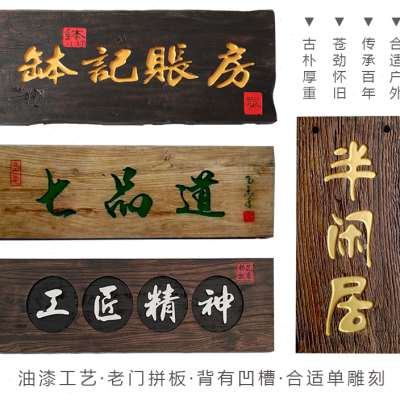 鉢記賬房
七品道
工匠精神
半闲居
合适户外
传承百年
苍劲怀旧
古朴厚重
油漆工艺·老门拼板·背有凹槽·合适单雕刻